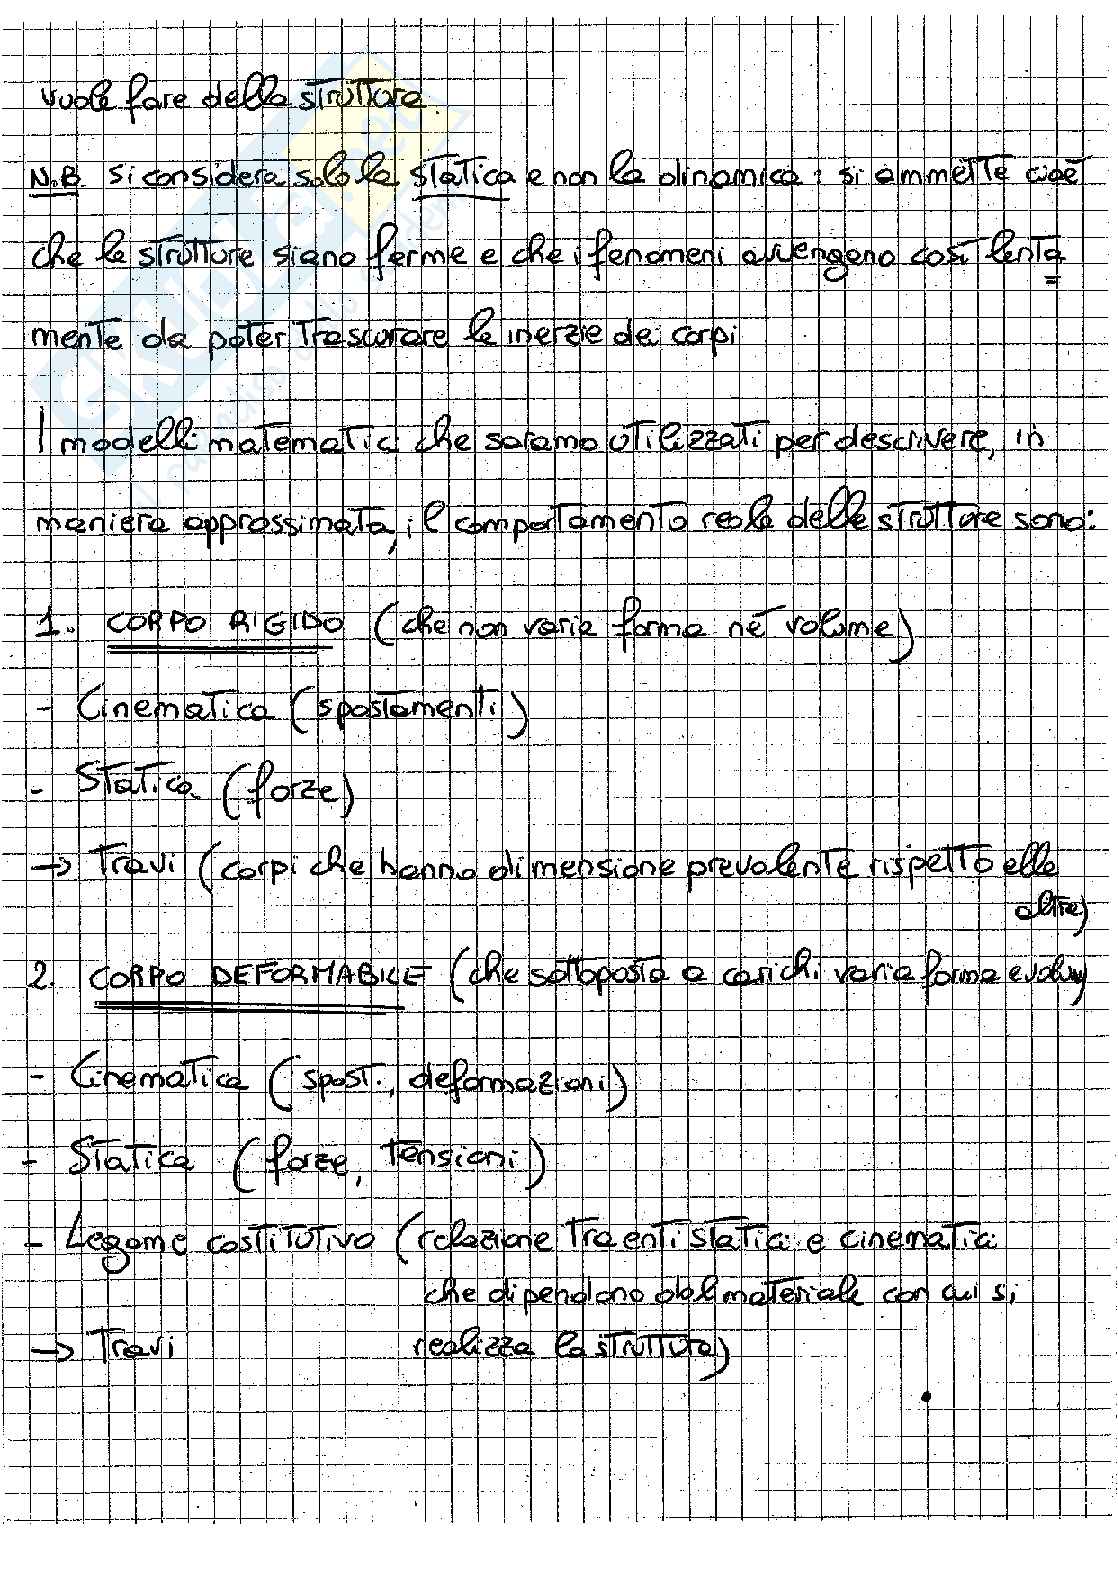 vuole fare della struttura.
N.B. si considera solo la statica e non la dinamica: si ammette cioè
che le strutture siano ferme e che i fenomeni avvengano così lenta
mente da poter trascurare le inerzie dei corpi
I modelli matematici che saranno utilizzati per descrivere, in
maniera approssimata, il comportamento reale delle strutture sono:
1. CORPO RIGIDO (che non varia forma né volume)
- Cinematica (spostamenti)
- Statica (forze)
→ Travi (corpi che hanno dimensione prevalente rispetto alle
altre)
2. CORPO DEFORMABILE (che sottoposto a carichi varia forma e volume)
- Cinematica (spost., deformazioni)
- Statica (forze, tensioni)
- Legame costitutivo (relazione tra enti statici e cinematici
che dipendono dal materiale con cui si
→ Travi realizza la struttura)